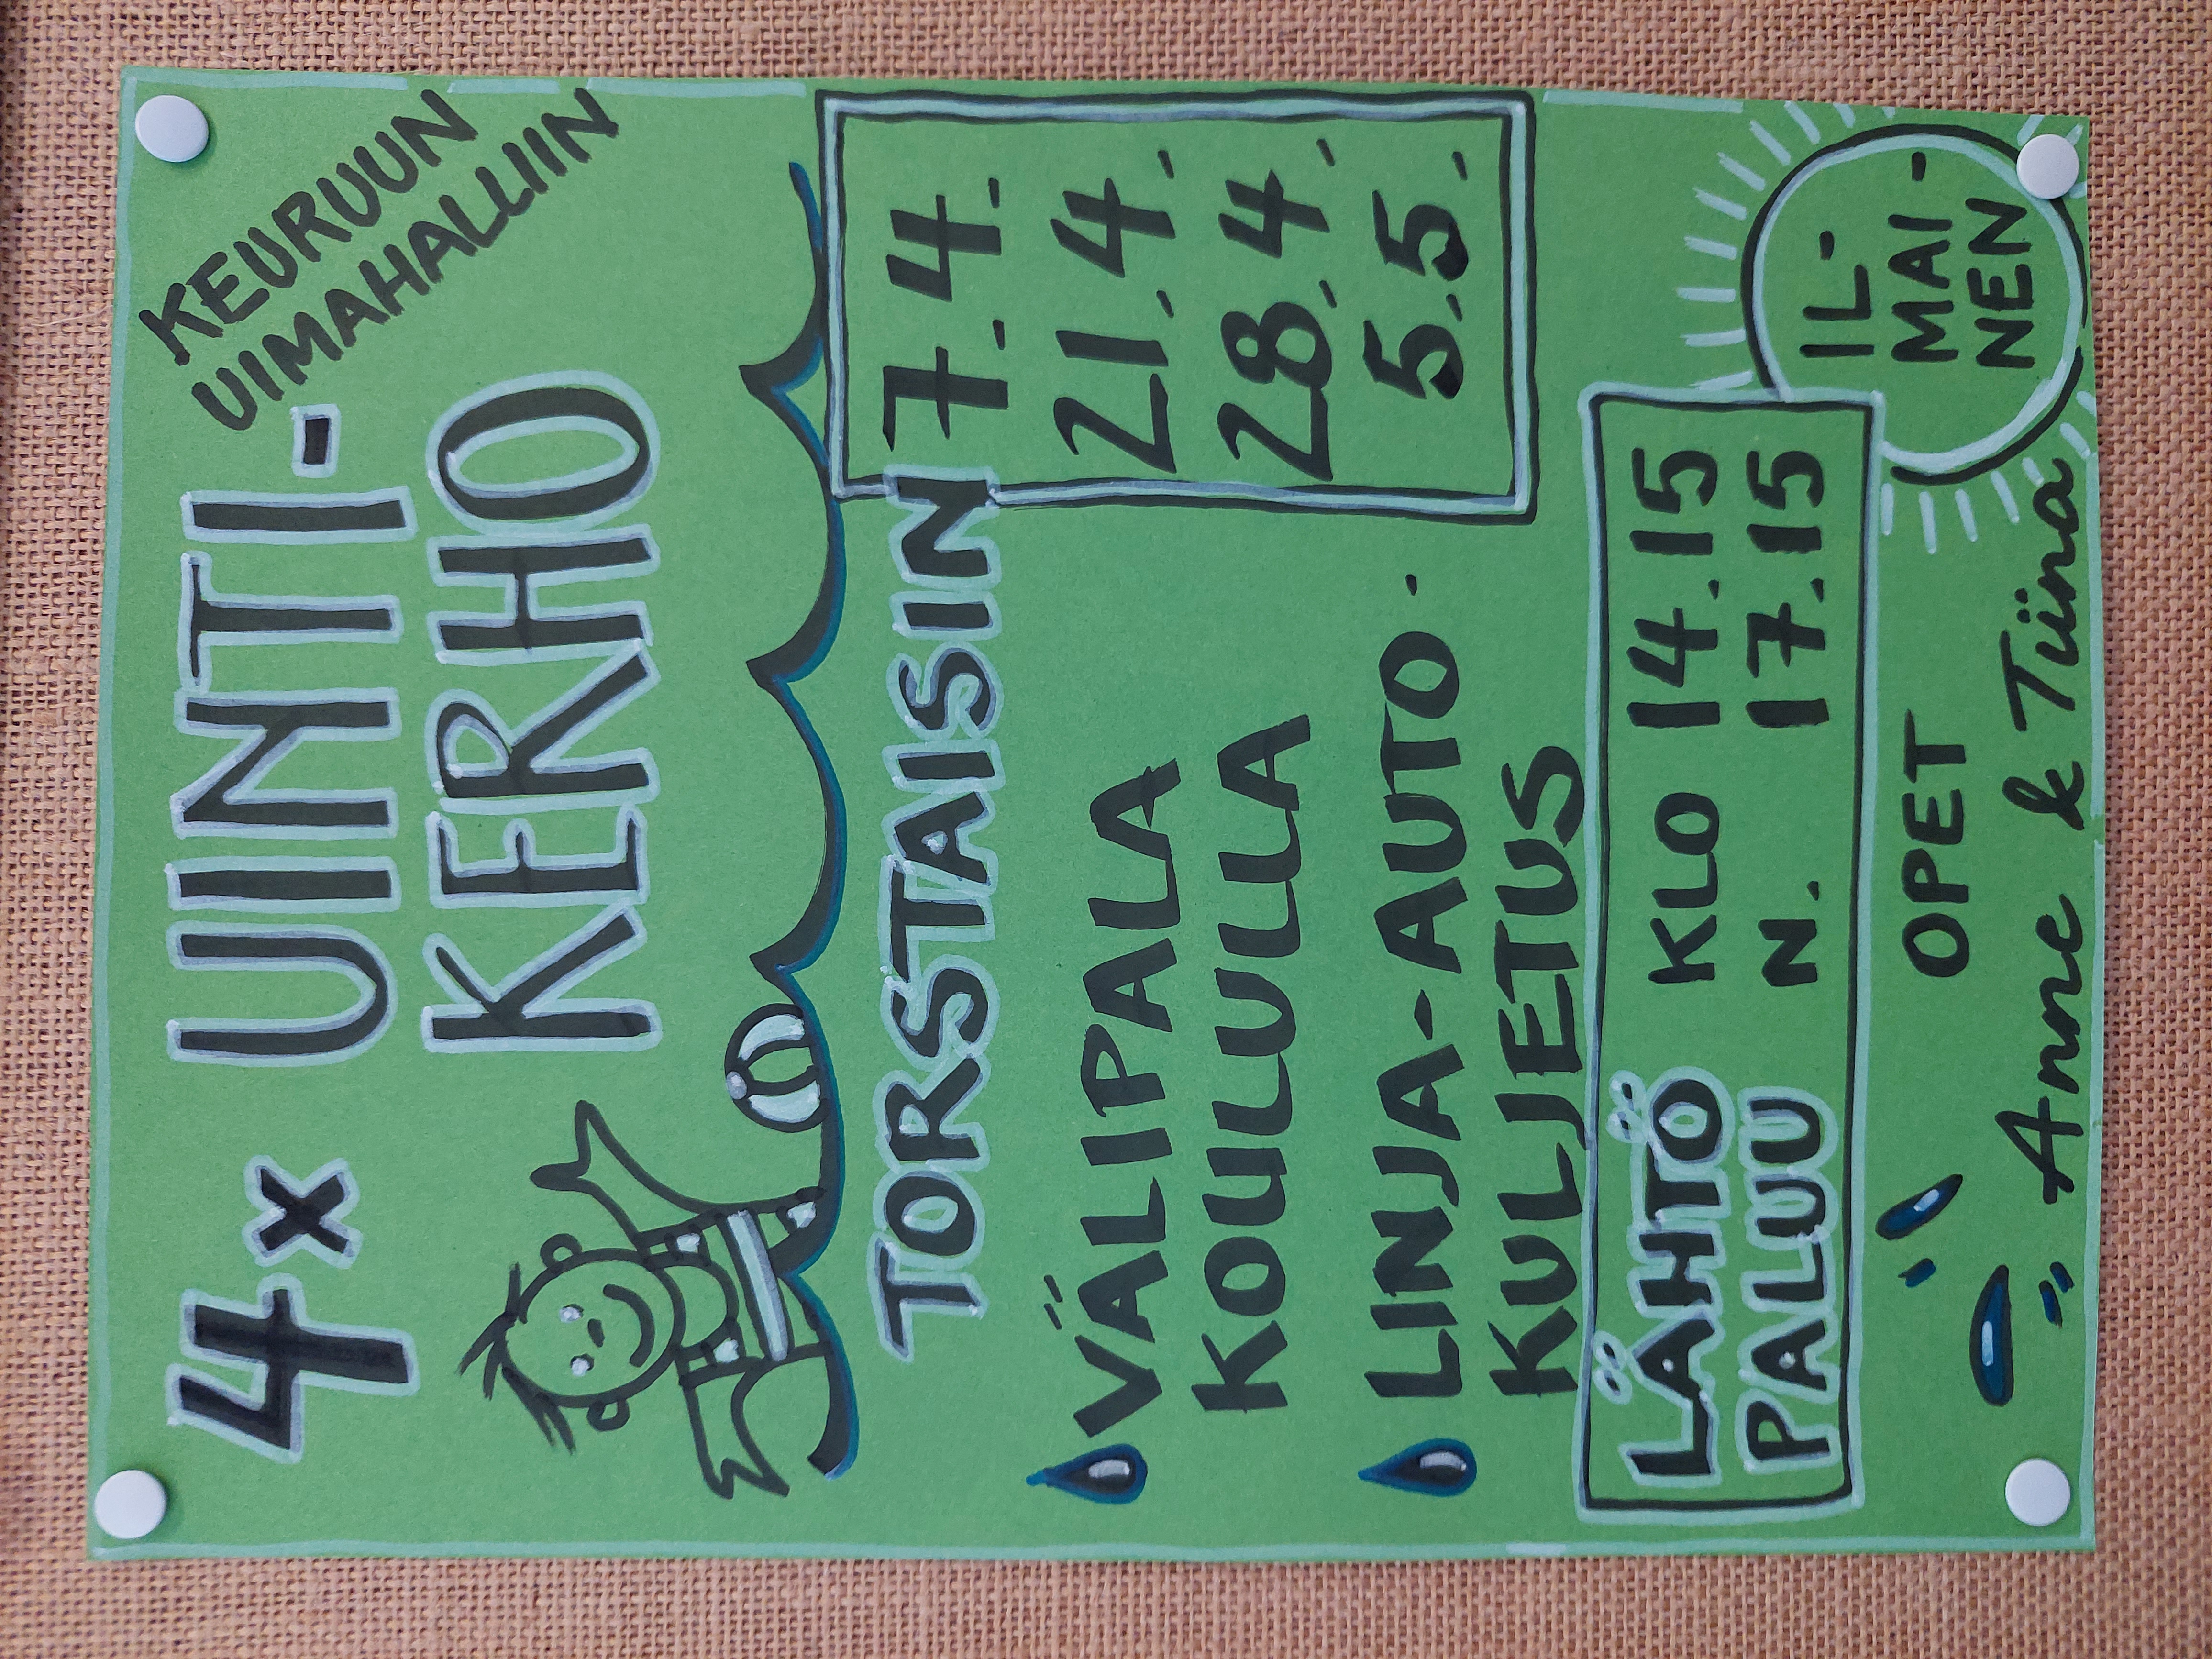 4x UINTI-
KERHO
KEURUUN
UIMAHALLIIN
TORSTAISIN
7.4.
21.4.
28.4.
5.5.
VÄLIPALA
KOULULLA
LINJA-AUTO-
KULJETUS
LÄHTÖ KLO 14.15
PALUU N. 17.15
IL-
MAI-
NEN
OPET
Anne & Tiina